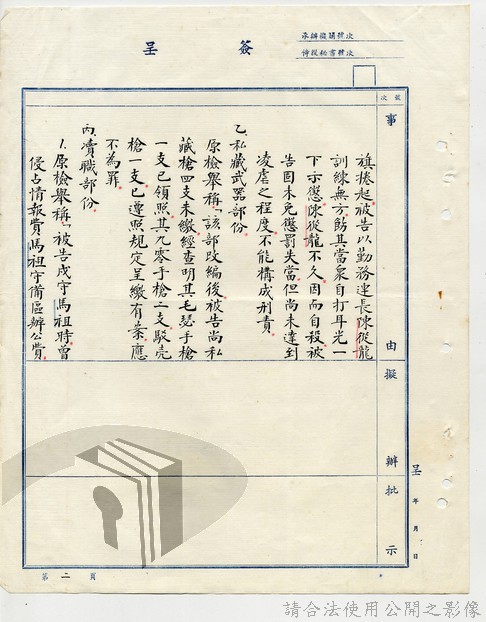 簽呈
承辦機關號次
傅祕書號次
號次
事由
擬辦
批示
旗捲起被告以勤務連長陳從龍
訓練無方飭其當眾自打耳光一
下示懲陳從龍不久因而自殺被
告固未免懲罰失當但尚未達到
凌虐之程度不能構成刑責。
乙、私藏武器部份
原檢舉稱「該部改編後被告尚私
藏槍四支未繳經查明其毛瑟手槍
一支已領照其九零手槍二支駁壳
槍一支已遵照規定呈繳有案應
不為罪。
丙、瀆職部份。
1.原檢舉稱「被告戍守馬祖時曾
侵占情報費馬祖守備區辦公費
呈 年 月 日
第二頁
請合法使用公開之影像